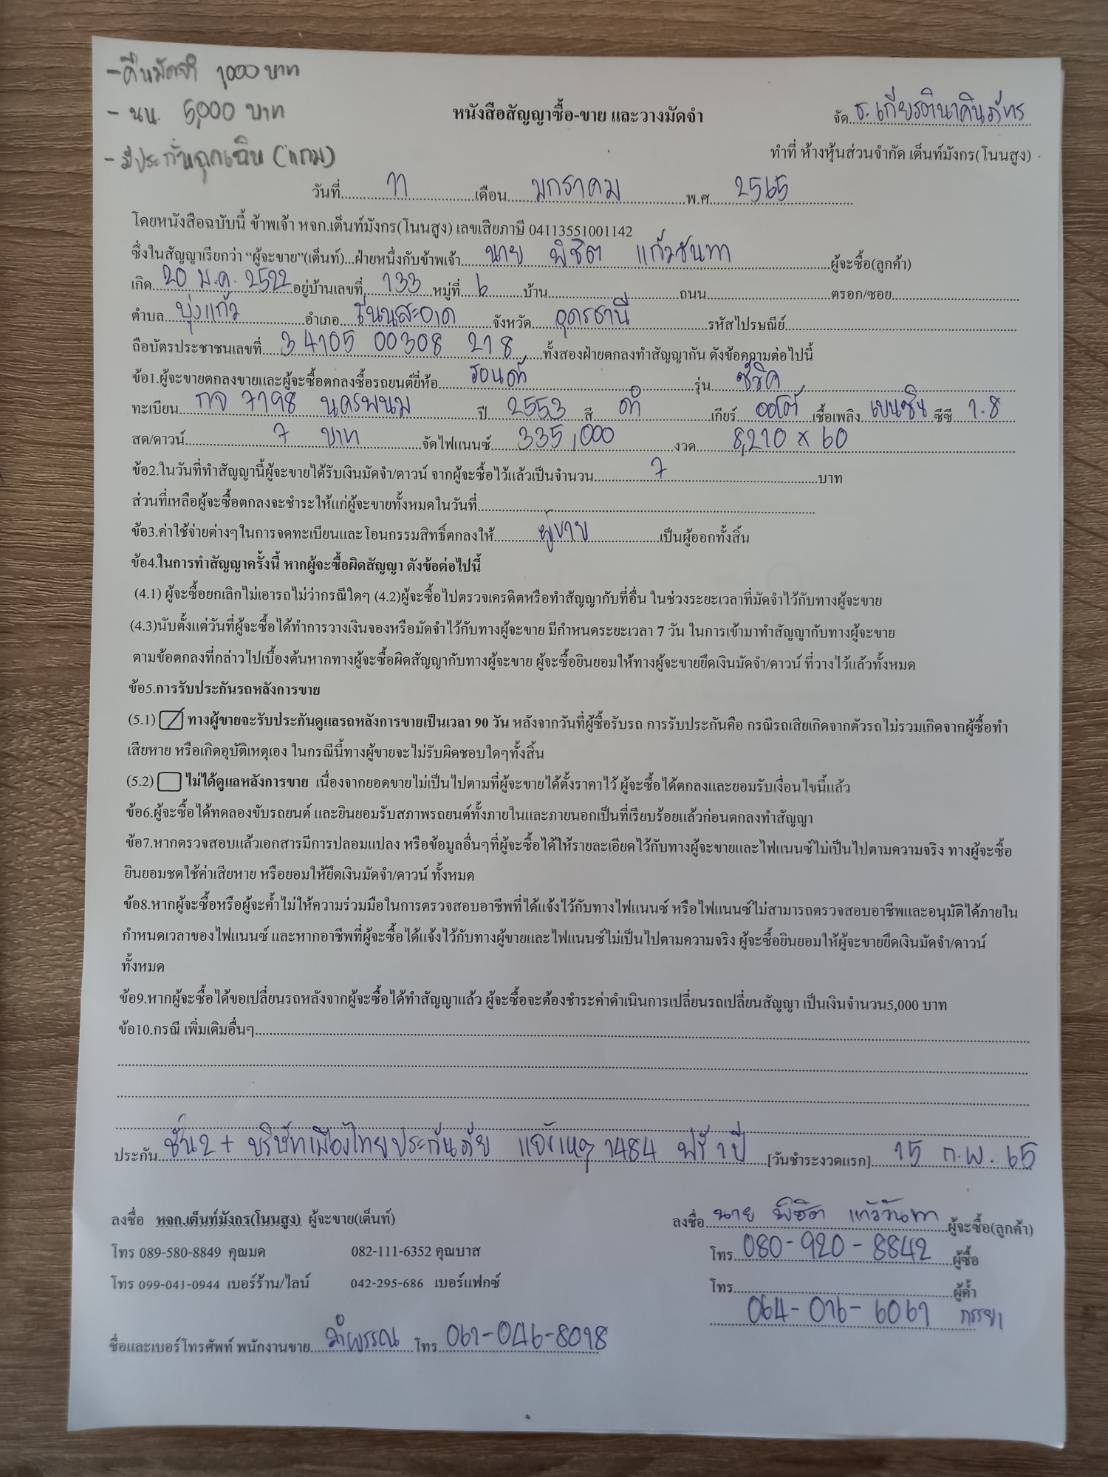 -คืนมัดจำ 1000 บาท
- นน. 5,000 บาท
- มีประกันฉุกเฉิน (แถม)
หนังสือสัญญาซื้อ-ขาย และวางมัดจำ
จัด ธ. เกียรตินาคินภัทร
ทำที่ ห้างหุ้นส่วนจำกัด เต็นท์มังกร(โนนสูง)
วันที่ 11 เดือน มกราคม พ.ศ. 2565
โดยหนังสือฉบับนี้ ข้าพเจ้า หจก.เต็นท์มังกร(โนนสูง) เลขเสียภาษี 04113551001142
ซึ่งในสัญญาเรียกว่า "ผู้จะขาย"(เต็นท์)...ฝ่ายหนึ่งกับข้าพเจ้า นาย พิชิต แก้วจันทา ผู้จะซื้อ(ลูกค้า)
เกิด 20 ม.ค. 2522 อยู่บ้านเลขที่ 133 หมู่ที่ 6 บ้าน ถนน ตรอก/ซอย
ตำบล บุ่งแก้ว อำเภอ โนนสะอาด จังหวัด อุดรธานี รหัสไปรษณีย์
ถือบัตรประชาชนเลขที่ 3 4105 00308 21 8 ทั้งสองฝ่ายตกลงทำสัญญากัน ดังข้อความต่อไปนี้
ข้อ1.ผู้จะขายตกลงขายและผู้จะซื้อตกลงซื้อรถยนต์ยี่ห้อ ฮอนด้า รุ่น ซีวิค
ทะเบียน กจ 7198 นครพนม ปี 2553 สี ดำ เกียร์ ออโต้ เชื้อเพลิง เบนซิน ซีซี 1.8
สด/ดาวน์ 7 บาท จัดไฟแนนซ์ 335,000 งวด 8,210 x 60
ข้อ2.ในวันที่ทำสัญญานี้ผู้จะขายได้รับเงินมัดจำ/ดาวน์ จากผู้จะซื้อไว้แล้วเป็นจำนวน 7 บาท
ส่วนที่เหลือผู้จะซื้อตกลงจะชำระให้แก่ผู้จะขายทั้งหมดในวันที่
ข้อ3.ค่าใช้จ่ายต่างๆในการจดทะเบียนและโอนกรรมสิทธิ์ตกลงให้ ผู้ขาย เป็นผู้ออกทั้งสิ้น
ข้อ4.ในการทำสัญญาครั้งนี้ หากผู้จะซื้อผิดสัญญา ดังข้อต่อไปนี้
(4.1) ผู้จะซื้อยกเลิกไม่เอารถไม่ว่ากรณีใดๆ (4.2)ผู้จะซื้อไปตรวจเครดิตหรือทำสัญญากับที่อื่น ในช่วงระยะเวลาที่มัดจำไว้กับทางผู้จะขาย
(4.3)นับตั้งแต่วันที่ผู้จะซื้อได้ทำการวางเงินจองหรือมัดจำไว้กับทางผู้จะขาย มีกำหนดระยะเวลา 7 วัน ในการเข้ามาทำสัญญากับทางผู้จะขาย
ตามข้อตกลงที่กล่าวไปเบื้องต้นหากทางผู้จะซื้อผิดสัญญากับทางผู้จะขาย ผู้จะซื้อยินยอมให้ทางผู้จะขายยึดเงินมัดจำ/ดาวน์ ที่วางไว้แล้วทั้งหมด
ข้อ5.การรับประกันรถหลังการขาย
(5.1) ทางผู้ขายจะรับประกันดูแลรถหลังการขายเป็นเวลา 90 วัน หลังจากวันที่ผู้ซื้อรับรถ การรับประกันคือ กรณีรถเสียเกิดจากตัวรถไม่รวมเกิดจากผู้ซื้อทำ
เสียหาย หรือเกิดอุบัติเหตุเอง ในกรณีนี้ทางผู้ขายจะไม่รับผิดชอบใดๆทั้งสิ้น
(5.2) ไม่ได้ดูแลหลังการขาย เนื่องจากยอดขายไม่เป็นไปตามที่ผู้จะขายได้ตั้งราคาไว้ ผู้จะซื้อได้ตกลงและยอมรับเงื่อนไขนี้แล้ว
ข้อ6.ผู้จะซื้อได้ทดลองขับรถยนต์ และยินยอมรับสภาพรถยนต์ทั้งภายในและภายนอกเป็นที่เรียบร้อยแล้วก่อนตกลงทำสัญญา
ข้อ7.หากตรวจสอบแล้วเอกสารมีการปลอมแปลง หรือข้อมูลอื่นๆที่ผู้จะซื้อได้ให้รายละเอียดไว้กับทางผู้จะขายและไฟแนนซ์ไม่เป็นไปตามความจริง ทางผู้จะซื้อ
ยินยอมชดใช้ค่าเสียหาย หรือยอมให้ยึดเงินมัดจำ/ดาวน์ ทั้งหมด
ข้อ8.หากผู้จะซื้อหรือผู้จะค้ำไม่ให้ความร่วมมือในการตรวจสอบอาชีพที่ได้แจ้งไว้กับทางไฟแนนซ์ หรือไฟแนนซ์ไม่สามารถตรวจสอบอาชีพและอนุมัติได้ภายใน
กำหนดเวลาของไฟแนนซ์ และหากอาชีพที่ผู้จะซื้อได้แจ้งไว้กับทางผู้ขายและไฟแนนซ์ไม่เป็นไปตามความจริง ผู้จะซื้อยินยอมให้ผู้จะขายยึดเงินมัดจำ/ดาวน์
ทั้งหมด
ข้อ9.หากผู้จะซื้อได้ขอเปลี่ยนรถหลังจากผู้จะซื้อได้ทำสัญญาแล้ว ผู้จะซื้อจะต้องชำระค่าดำเนินการเปลี่ยนรถเปลี่ยนสัญญา เป็นเงินจำนวน5,000 บาท
ข้อ10.กรณี เพิ่มเติมอื่นๆ
ประกัน ชั้น2+ บริษัทเมืองไทยประกันภัย แจ้งเหตุ 1484 ฟรี 1 ปี [วันชำระงวดแรก] 15 ก.พ. 65
ลงชื่อ หจก.เต็นท์มังกร(โนนสูง) ผู้จะขาย(เต็นท์)
ลงชื่อ นาย พิชิต แก้วจันทา ผู้จะซื้อ(ลูกค้า)
โทร 089-580-8849 คุณมด 082-111-6352 คุณบาส
โทร 080-920-8842 ผู้ซื้อ
โทร 099-041-0944 เบอร์ร้าน/ไลน์ 042-295-686 เบอร์แฟกซ์
โทร ผู้ค้ำ
064-016-6061 ภรรยา
ชื่อและเบอร์โทรศัพท์ พนักงานขาย ลำพรรณ โทร 061-046-8018